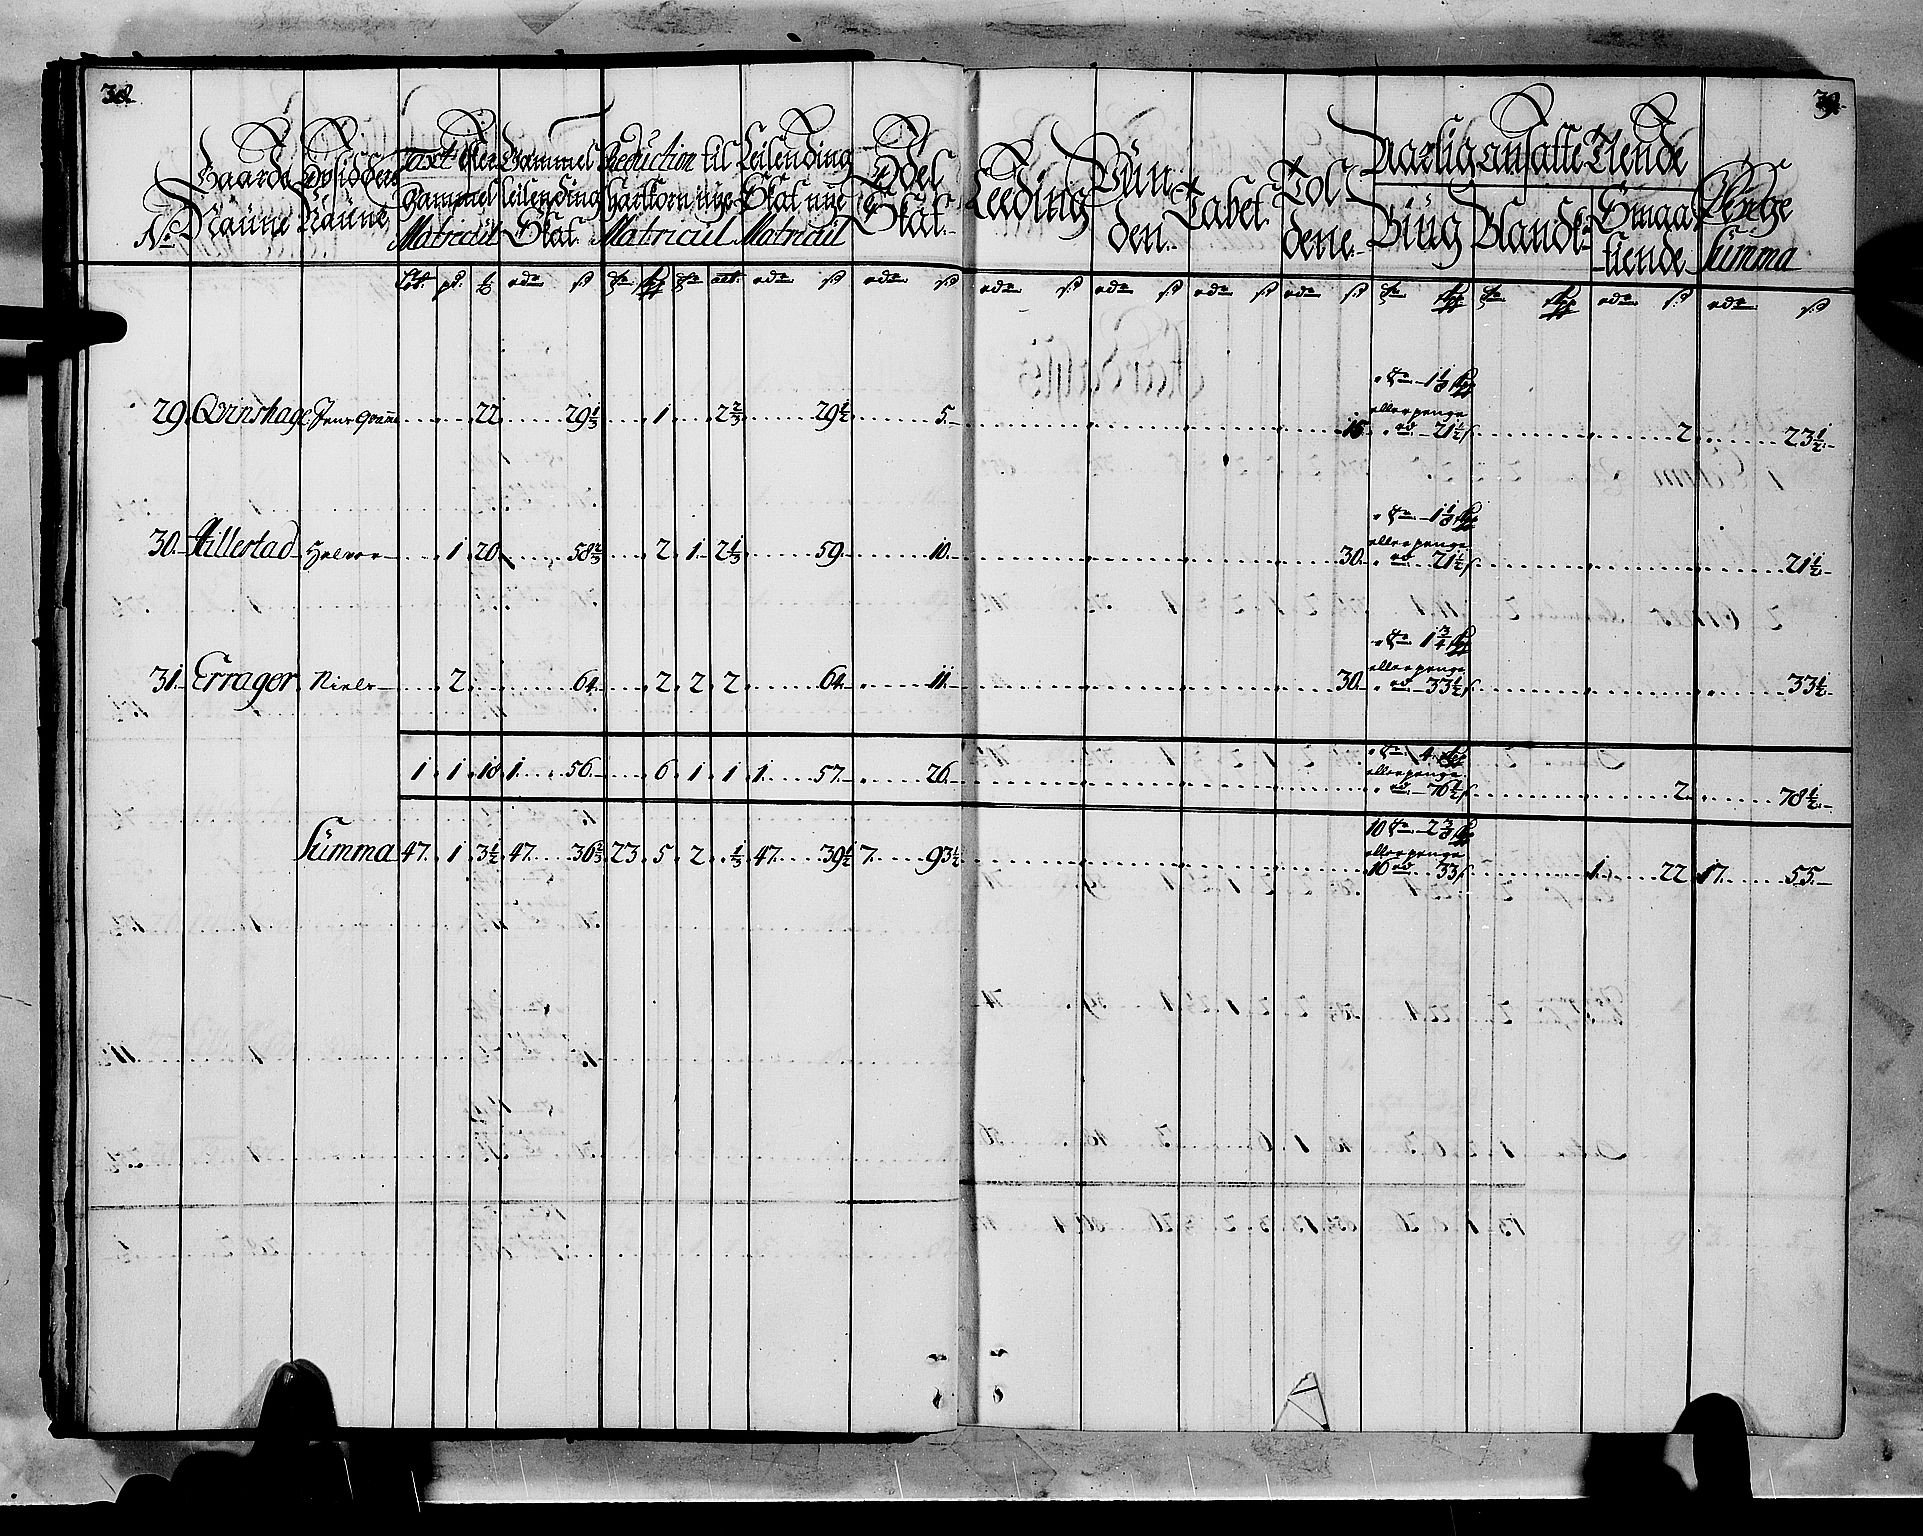 38.
39.
No
Gaarde Naüne
Opsiddere Naüne
Taxt efter Gammel Matricül
Gammel Leilending Skat
Reduction til hartkorn nÿe Matricül
Leilending Skat nÿe Matricül
Odel Skat
Leeding
Vün den
Tabel
Tol dene
Aarlig ansatte Tiende
Büg
Bland K:
Smaa tiende
Penge Summa
29. Qvinshage 22 29 1/3 1 2 2/3 29 1/2 5 15 1 1/8 eller penge 21 1/2 2 23 1/2
30. Hillestad Halvor 1 20 58 2/3 2 1 2 1/3 59 10 30 1 1/8 eller penge 21 1/2 21 1/2
31. Errager Niels 2 64 2 2 2 64 11 30 1 3/4 eller penge 33 1/2 33 1/2
1 1 18 1 56 6 1 1 1 57 26 4 eller penge 76 1/2 2 78 1/2
Summa 47 1 3 1/2 47 36 2/3 23 5 2 1/3 47 39 1/2 7 93 1/2 10 2 3/8 eller penge 16 33 1 22 17 55